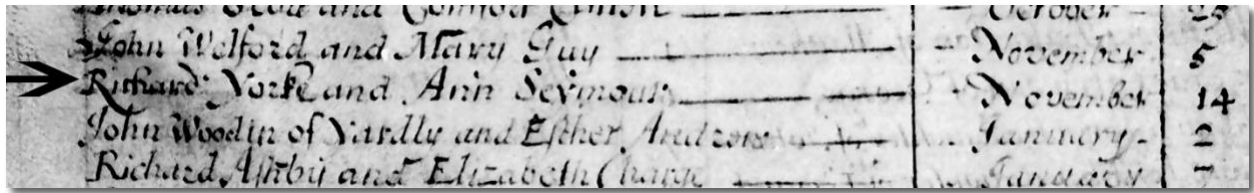 Thomas and Comfort October 25
John Welford and Mary Guy November 5
Richard Yorke and Ann Seymour November 14
John Woodin of Yardly and Esther Andrews January 2
Richard Ashby and Elizabeth Charge January 7